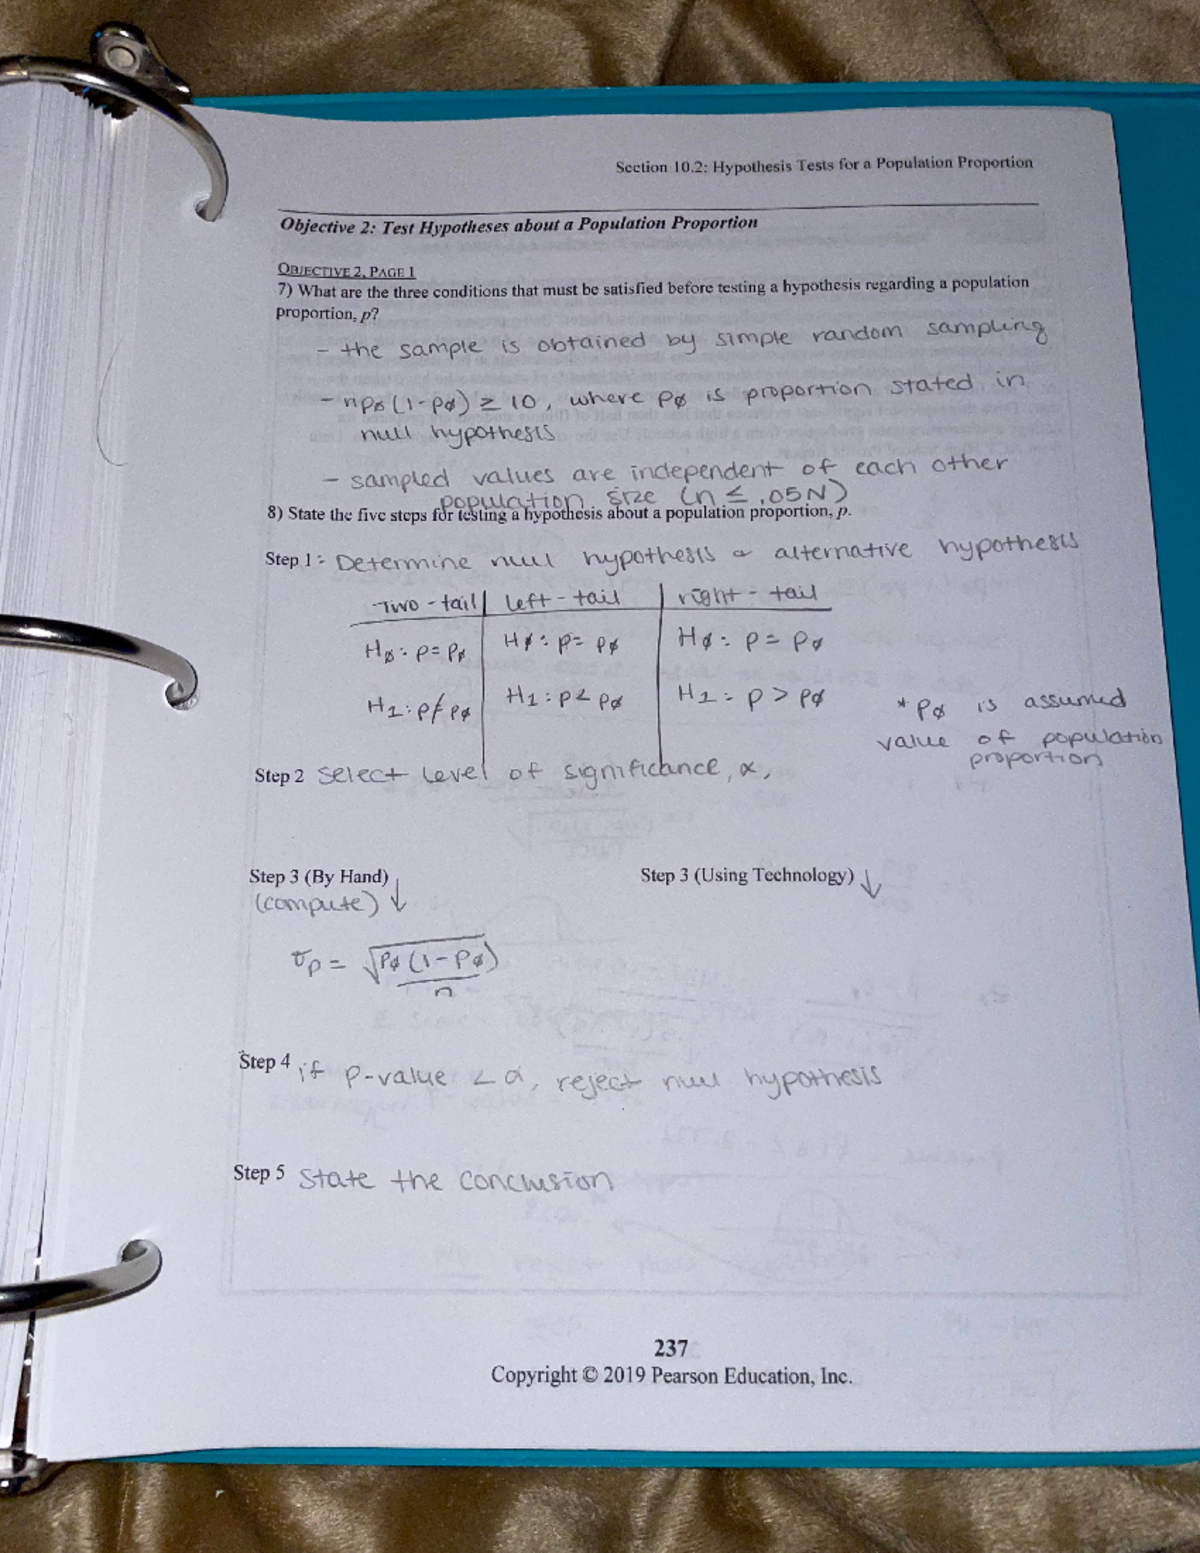 Section 10.2: Hypothesis Tests for a Population Proportion
Objective 2: Test Hypotheses about a Population Proportion
OBJECTIVE 2, PAGE 1
7) What are the three conditions that must be satisfied before testing a hypothesis regarding a population
proportion, p?
- the sample is obtained by simple random sampling
- np∅(1-p∅) ≥ 10, where p∅ is proportion stated in
null hypothesis
- sampled values are independent of each other
population size (n ≤ .05N)
8) State the five steps for testing a hypothesis about a population proportion, p.
Step 1: Determine null hypothesis & alternative hypothesis
Two-tail | left-tail | right-tail
H∅: p = p∅ | H∅: p = p∅ | H∅: p = p∅
H1: p ≠ p∅ | H1: p < p∅ | H1: p > p∅
* p∅ is assumed
value of population
proportion
Step 2 Select level of significance, α,
Step 3 (By Hand) ↓ Step 3 (Using Technology) ↓
(compute)
σp = √p∅(1-p∅)
n
Step 4 if p-value < α, reject null hypothesis
Step 5 State the conclusion
237
Copyright © 2019 Pearson Education, Inc.